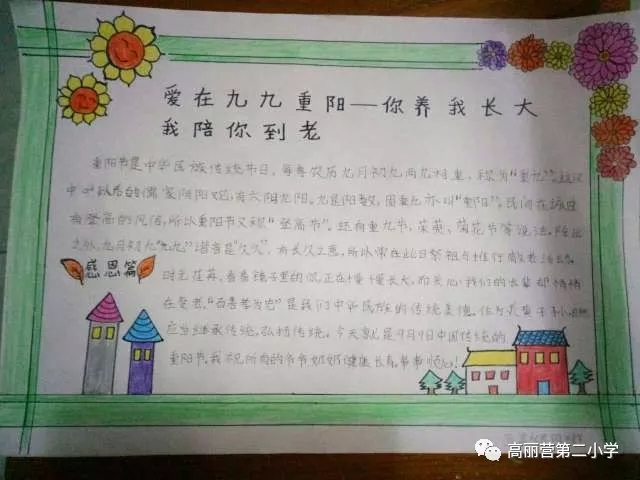 爱在九九重阳—你养我长大
我陪你到老
重阳节是中华民族传统节日。每年农历九月初九两九相重,称为"重九"。
中叶以后的儒家阴阳观,有六阴九阳。九是阳数,因重九亦叫"重阳"。民间在
有登高的风俗,所以重阳节又称"登高节"。还有重九节,茱萸,菊花节等说法。
之外,九月初九"九九"谐音是"久久",有长久之意,所以常在此日祭祖与推行敬老活动。
感恩篇
时光荏苒,看着镜子里的 正在慢慢长大,而关心我们的长辈却悄悄
在变老,"百善孝为先"是我们中华民族的传统美德。作为炎黄子孙,
应当继承传统,弘扬传统。今天就是9月9日中国传统的
重阳节,我祝所有的爷爷奶奶健康长寿,事事顺心!
高丽营第二小学